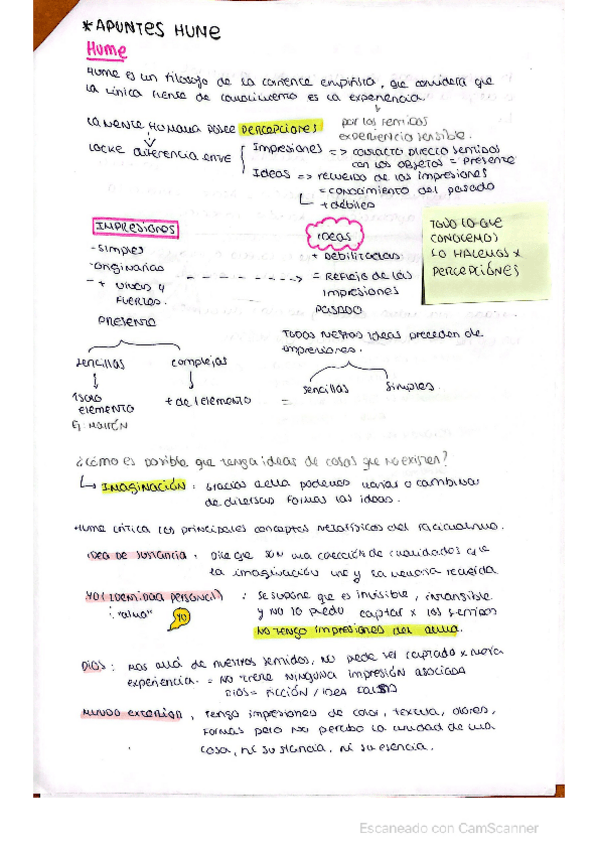 *APUNTES HUME
Hume
Hume es un filosofo de la corriente empirista, que considera que
la única fuente de conocimiento es la experiencia
por los sentidos
experiencia sensible.
La mente humana posee percepciones
Locke diferencia entre
Impresiones => contacto directo sentidos
con los objetos = presente
Ideas => recuerdo de las impresiones
= conocimiento del pasado
+ débiles
IMPRESIONES
- simples
- originarias
- + vivas y
fuertes.
PRESENTE
ideas
+ debilitadas
= Reflejo de las
impresiones
PASADO
TODO LO QUE
CONOCEMOS
LO HACEMOS x
PERCEPCIONES
Todas nuestras ideas preceden de
impresiones.
sencillas
complejas
1 solo
elemento
Ej marrón
+ de 1 elemento
=
sencillas
simples.
¿Cómo es posible que tenga ideas de cosas que no existen?
Imaginación: Gracias a ella podemos variar o combinar
de diversas formas las ideas.
·Hume critica los principales conceptos metafísicos del racionalismo.
idea de sustancia: Dice que son una colección de cualidades que
la imaginación une y la memoria recuerda
YO (identidad personal)
"alma"
YO
: Se supone que es invisible, intangible
y no lo puedo captar x los sentidos
NO TENGO impresiones del alma.
DIOS: mas allá de nuestros sentidos, no puede ser captado x nuestra
experiencia. = NO TIENE NINGUNA impresión asociada
DIOS = FICCIÓN / IDEA FALSA
Mundo exterior, tengo impresiones de color, textura, olores,
formas pero no percibo la unidad de una
cosa, ni sustancia, ni su esencia.
Escaneado con CamScanner